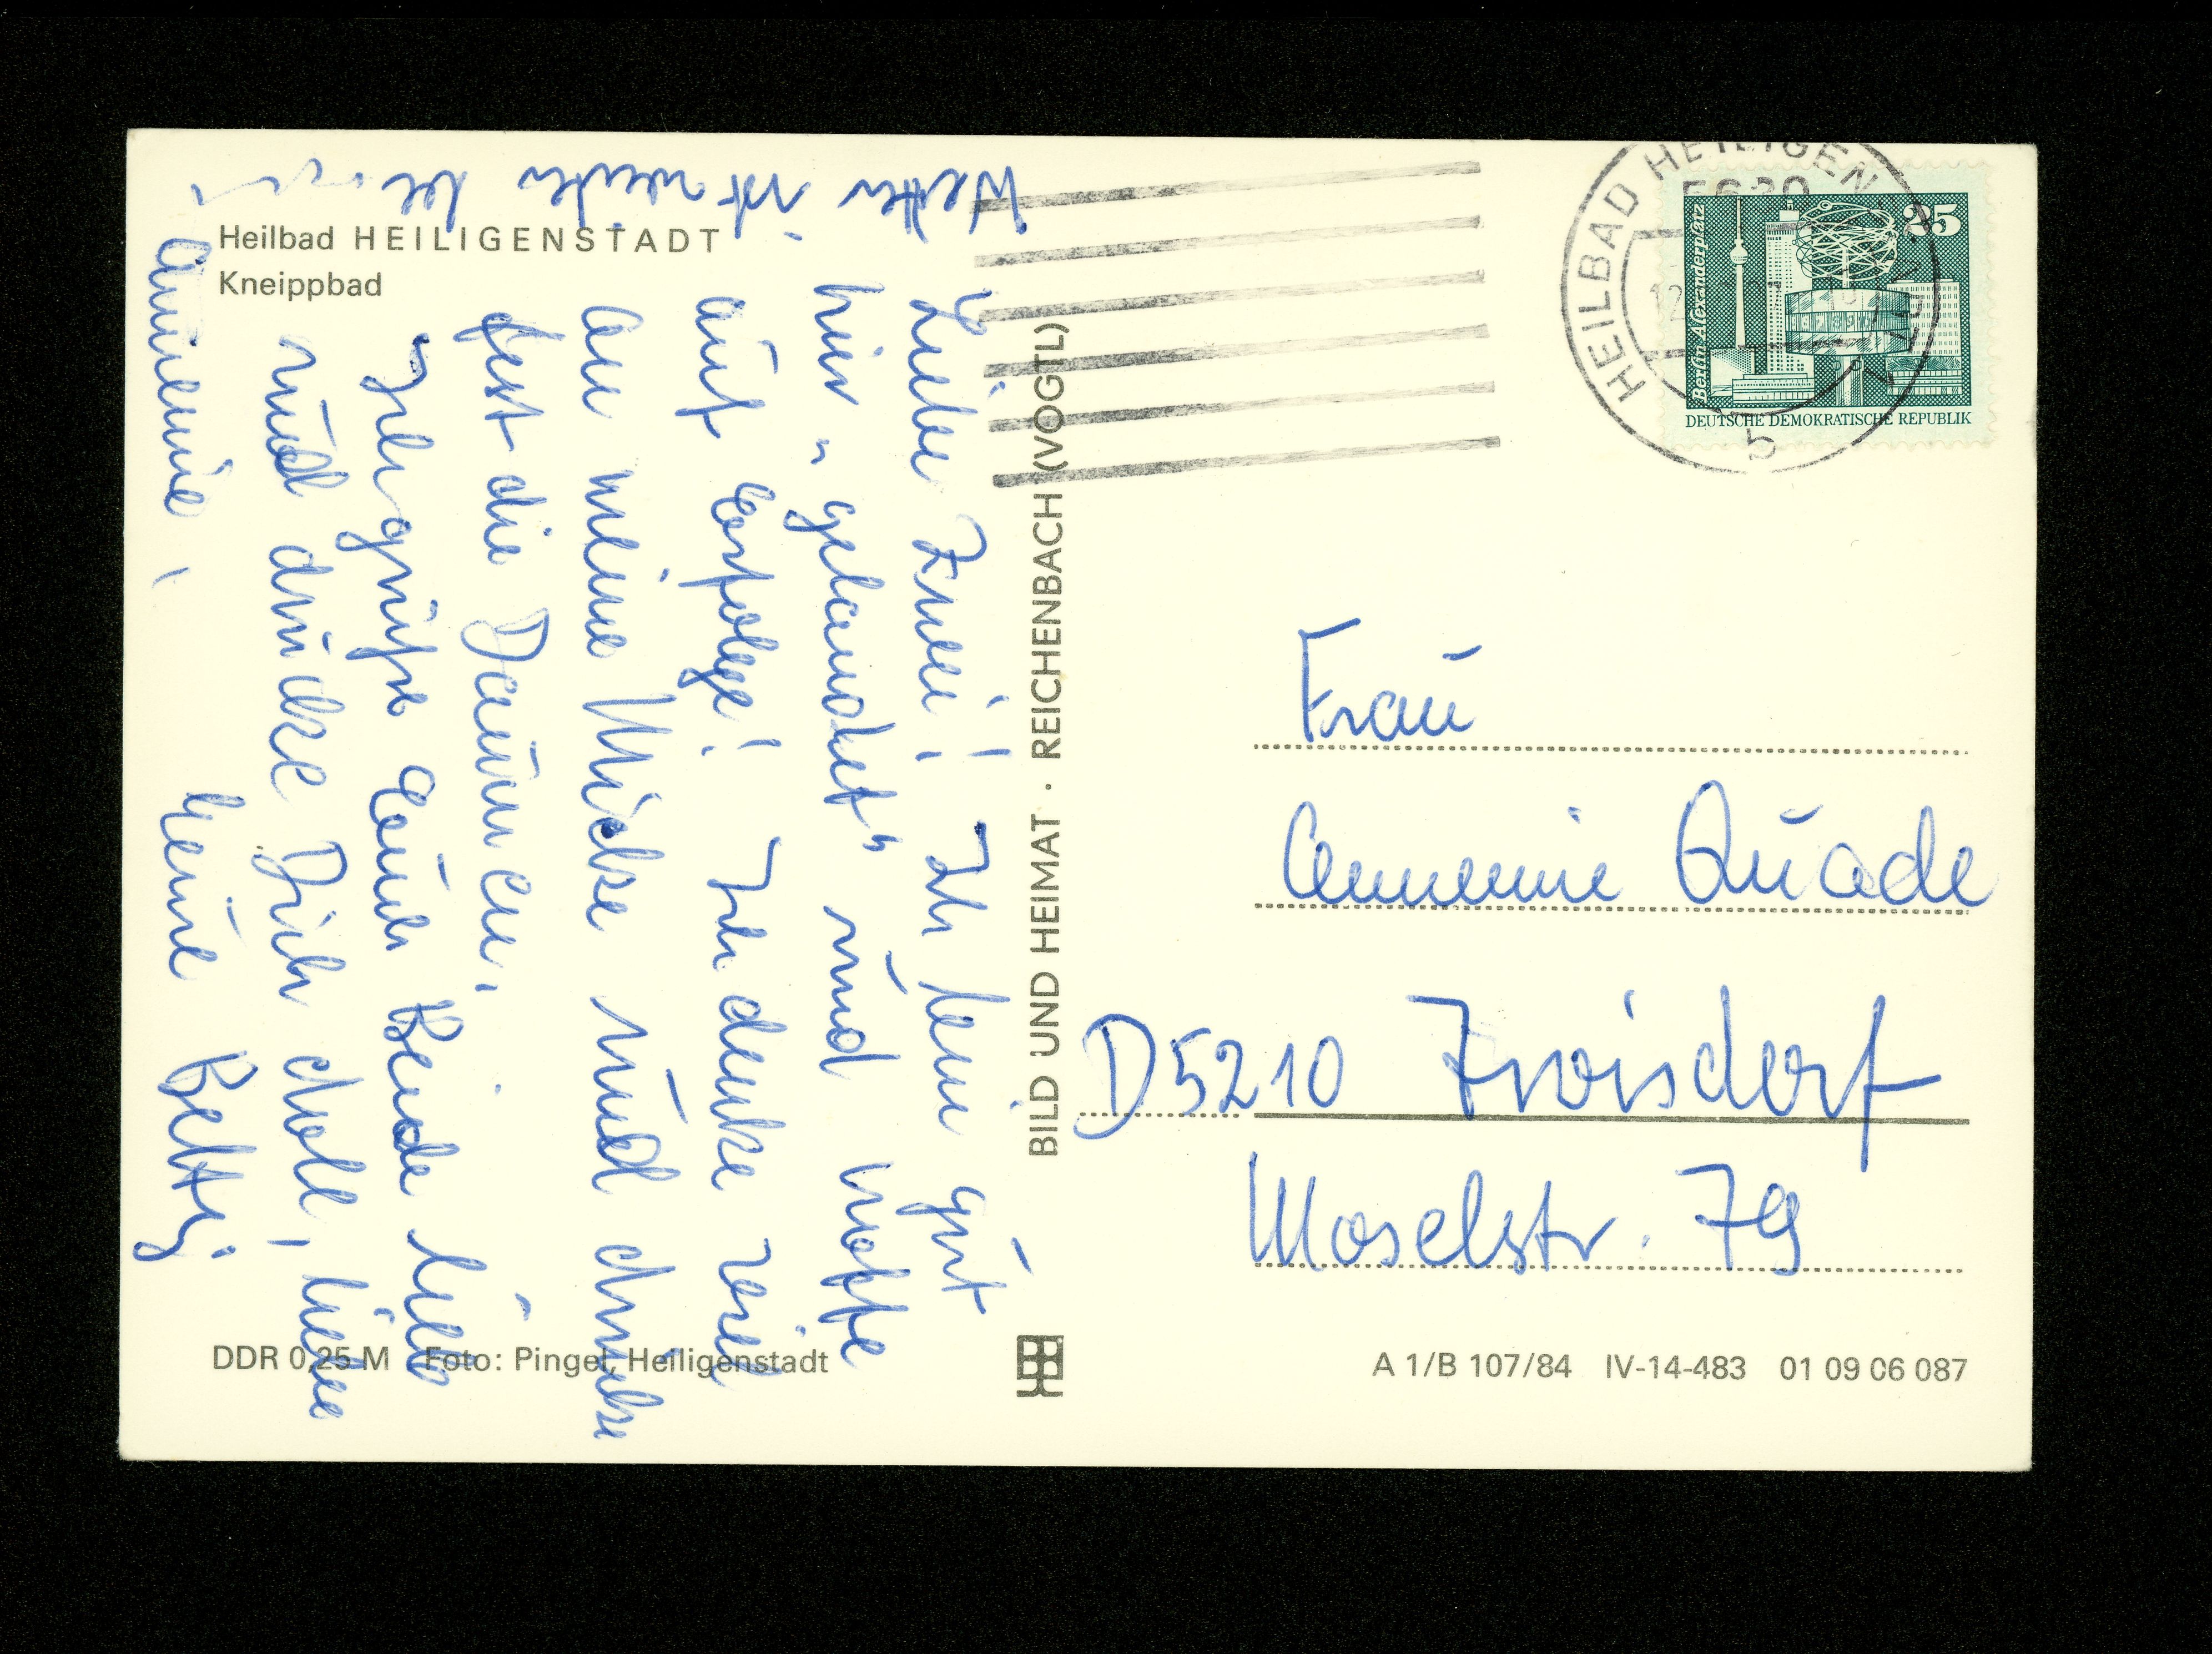 Heilbad HEILIGENSTADT
Kneippbad
Liebe Zwei! Ich bin gut
hier "gelandet" und hoffe
auf Erfolge! Ich denke sehr
an meine Micke und drücke
fest die Daumen,
Ich grüße Euch Beide lieb
und drücke Dich doll, liebe
Annemie,
Deine Betti
Wetter ist weiter
DDR 0,25 M Foto: Pingel, Heiligenstadt
BILD UND HEIMAT · REICHENBACH (VOGTL)
HEILBAD HEILIGEN
5
25
Berlin Alexanderplatz
DEUTSCHE DEMOKRATISCHE REPUBLIK
Frau
Annemie Quade
D5210 Troisdorf
Moselstr. 79
A 1/B 107/84 IV-14-483 01 09 06 087